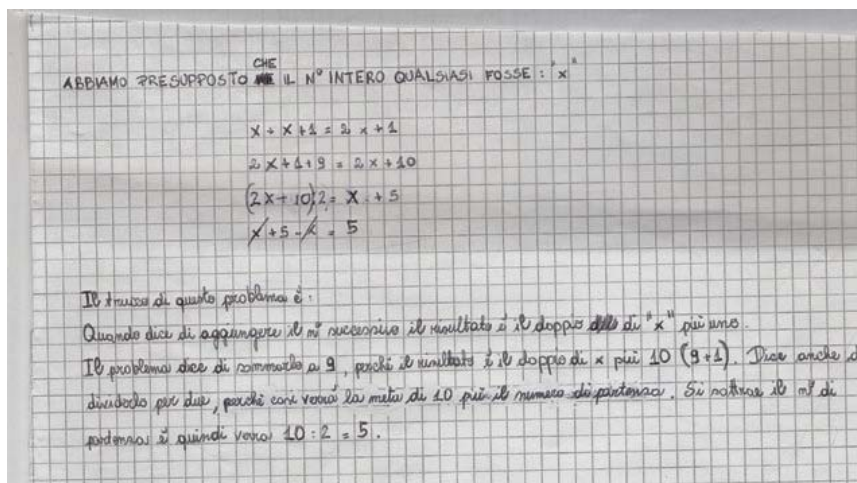 ABBIAMO PRESUPPOSTO CHE IL N° INTERO QUALSIASI FOSSE : "x"
x + x + 1 = 2 x + 1
2 x + 1 + 9 = 2x + 10
(2x + 10):2 = x + 5
x + 5 - x = 5
Il trucco di questo problema è :
Quando dice di aggiungere il n° successivo il risultato è il doppio di "x" più uno.
Il problema dice di sommarlo a 9, perché il risultato è il doppio di x più 10 (9+1). Dice anche d
dividerlo per due, perché così verrà la metà di 10 più il numero di partenza. Si sottrae il n° di
partenza e quindi verrà 10 : 2 = 5.